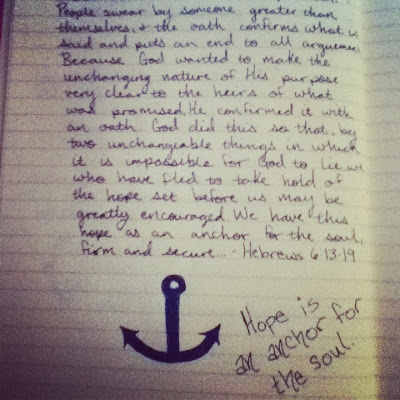 People swear by someone greater than
themselves, & the oath confirms what is
said and puts an end to all arguemen
Because God wanted to make the
unchanging nature of His purpose
very clear to the heirs of what
was promised, He confirmed it with
an oath. God did this so that, by
two unchangeable things in which
it is impossible for God to lie, we
who have fled to take hold of
the hope set before us may be
greatly encouraged. We have this
hope as an anchor for the soul,
firm and secure... - Hebrews 6:13-19
Hope is
an anchor for
the soul.